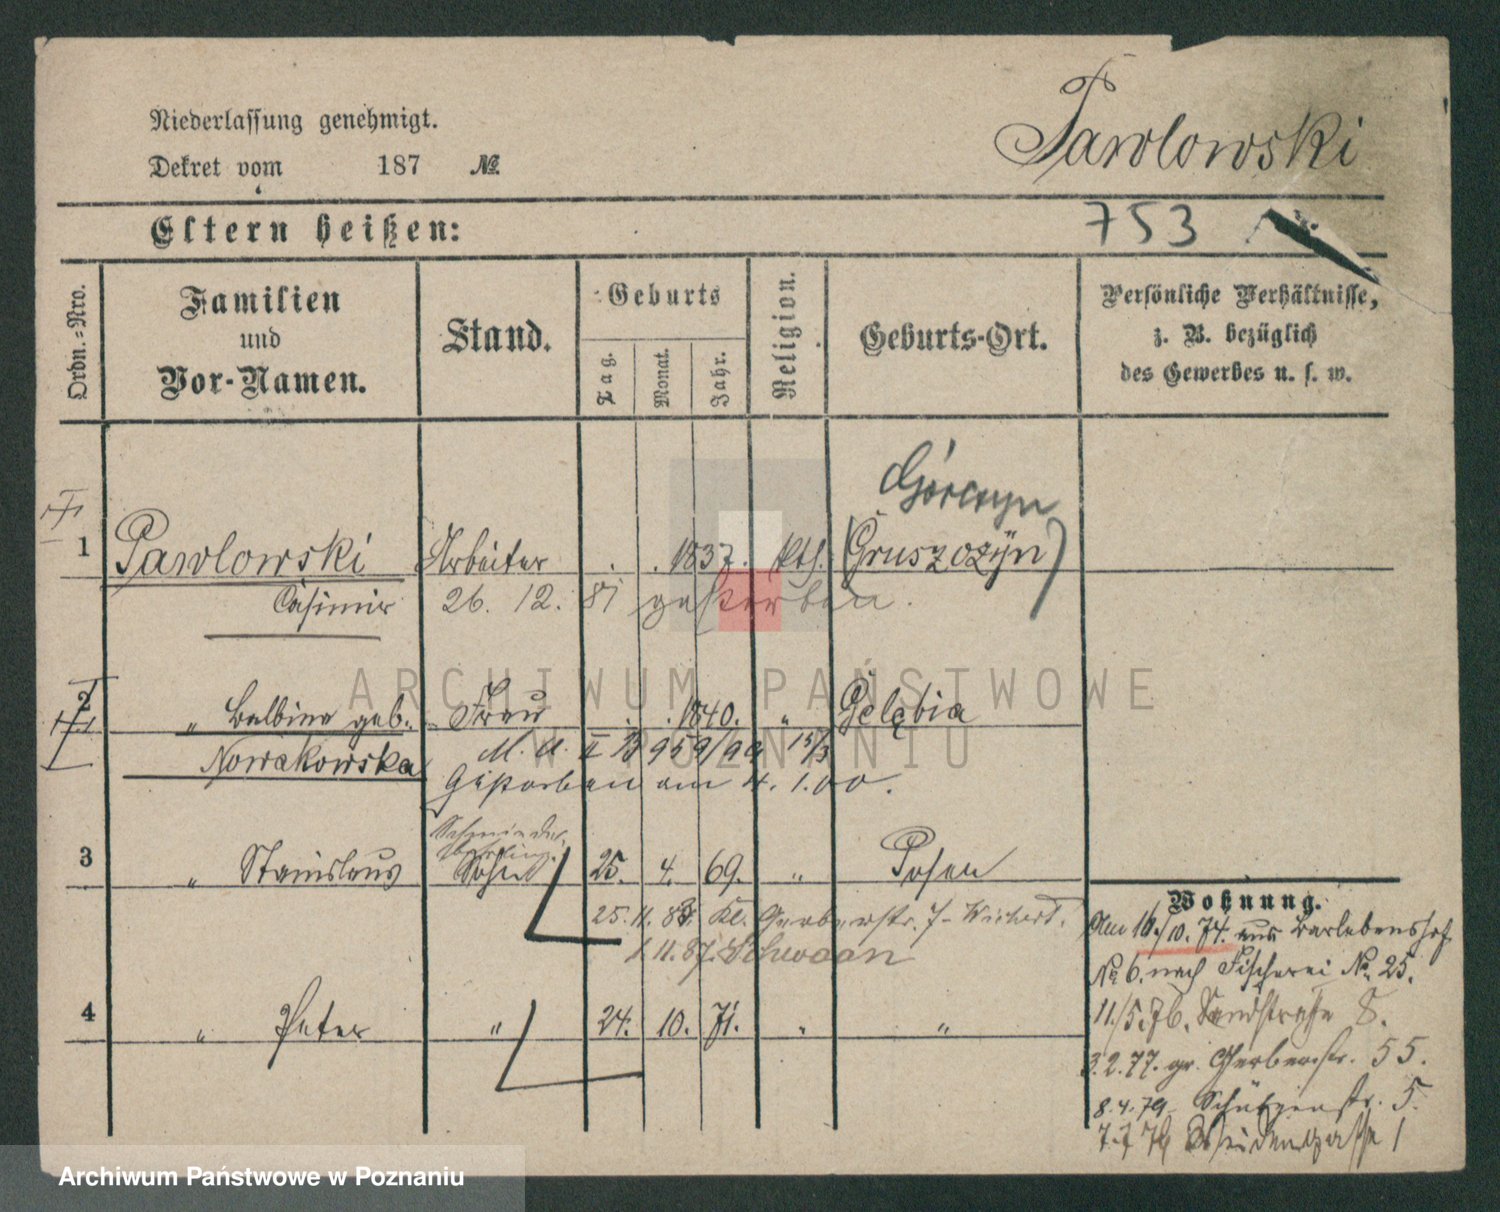 Niederlassung genehmigt.
Dekret vom 187 №
Pawlowski
Eltern heißen:
753
Ordn.-Nro.
Familien
und
Vor-Namen.
Stand.
Geburts
Tag.
Monat.
Jahr.
Religion.
Geburts-Ort.
Persönliche Verhältnisse,
z. B. bezüglich
des Gewerbes u. s. w.
Górczyn
1 Pawlowski Arbeiter . . 1837. kth. (Gruszczÿn)
Casimir 26. 12. 81 gestorben.
2 " Balbina geb. Frau . . 1840. " Golębia
Nowakowska
Gestorben am 4. 1. 00.
3 " Stanislaus Sohn 25. 4. 69. " Posen
25. 11. 84. Kl. Gerberstr. 7
1. 11. 87. Schwaan
4 " Peter " 24. 10. 71. " "
Wohnung.
Am 16/10. 74. aus Barlebenshof
№ 6. nach Fischerei №. 25.
11/5. 76. Sandstraße 8.
3. 2. 77. gr. Gerberstr. 55.
8. 4. 79. Schützenstr. 5.
Weidengasse 1
ARCHIWUM PAŃSTWOWE
W POZNANIU
Archiwum Państwowe w Poznaniu